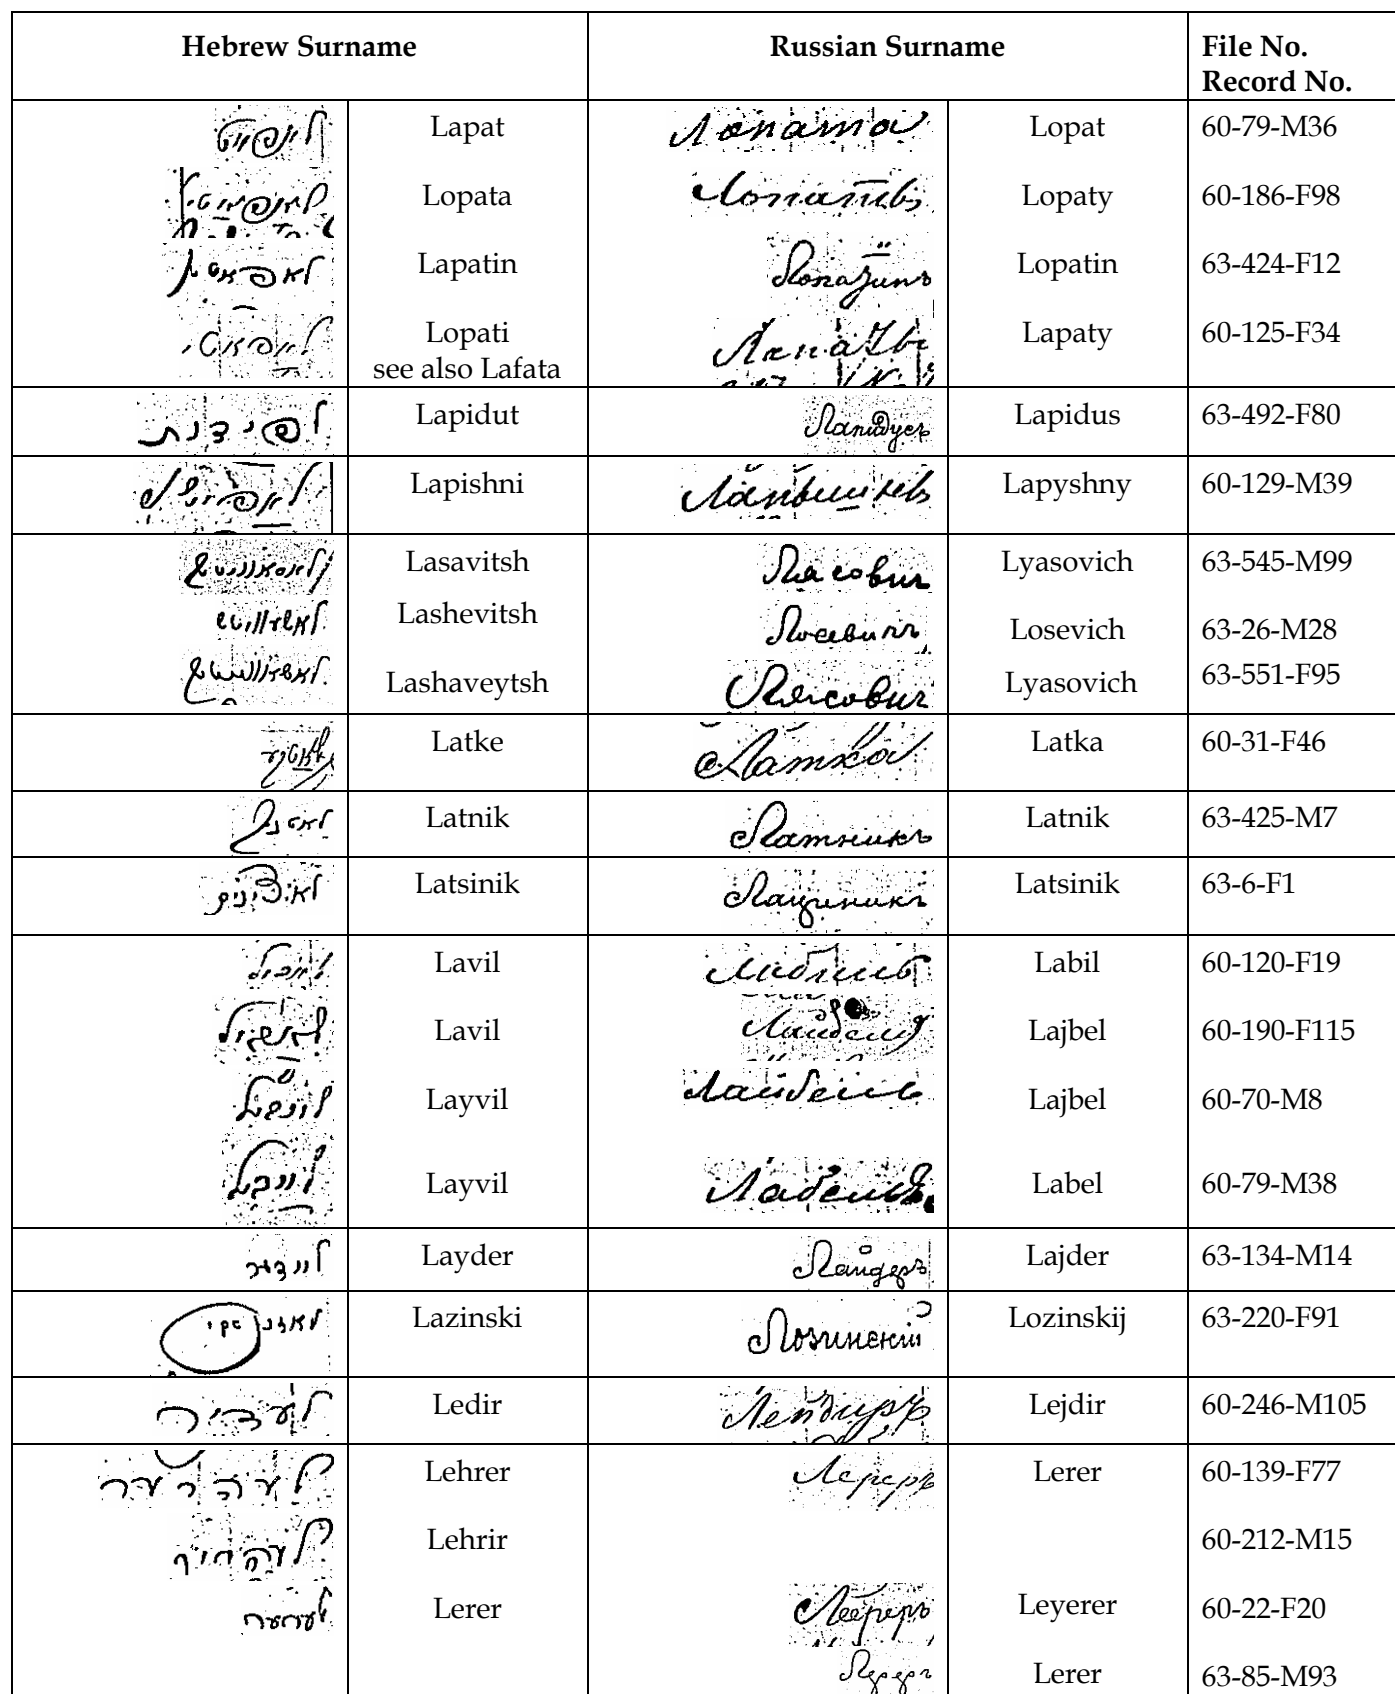 Hebrew Surname Russian Surname File No. Record No.
לאפאט Lapat Лопата Lopat 60-79-M36
Lopata Лопаты Lopaty 60-186-F98
לאפאטין Lapatin Лопатинъ Lopatin 63-424-F12
לאפאטי Lopati Лапаты Lapaty 60-125-F34
see also Lafata
לפידות Lapidut Лапидусъ Lapidus 63-492-F80
Lapishni Лапышны Lapyshny 60-129-M39
Lasavitsh Лясовичъ Lyasovich 63-545-M99
Lashevitsh Лосевичъ Losevich 63-26-M28
Lashaveytsh Лясовичъ Lyasovich 63-551-F95
לאטקע Latke Латка Latka 60-31-F46
לאטניק Latnik Латникъ Latnik 63-425-M7
לאציניק Latsinik Лациникъ Latsinik 63-6-F1
Lavil Labil 60-120-F19
Lavil Lajbel 60-190-F115
לייביל Layvil Лайбель Lajbel 60-70-M8
לייביל Layvil Лабель Label 60-79-M38
ליידער Layder Лайдеръ Lajder 63-134-M14
לאזינסקי Lazinski Лозинскій Lozinskij 63-220-F91
לעדיר Ledir Лейдиръ Lejdir 60-246-M105
לעהרער Lehrer Лереръ Lerer 60-139-F77
לעהריר Lehrir 60-212-M15
לערער Lerer Леереръ Leyerer 60-22-F20
Лереръ Lerer 63-85-M93